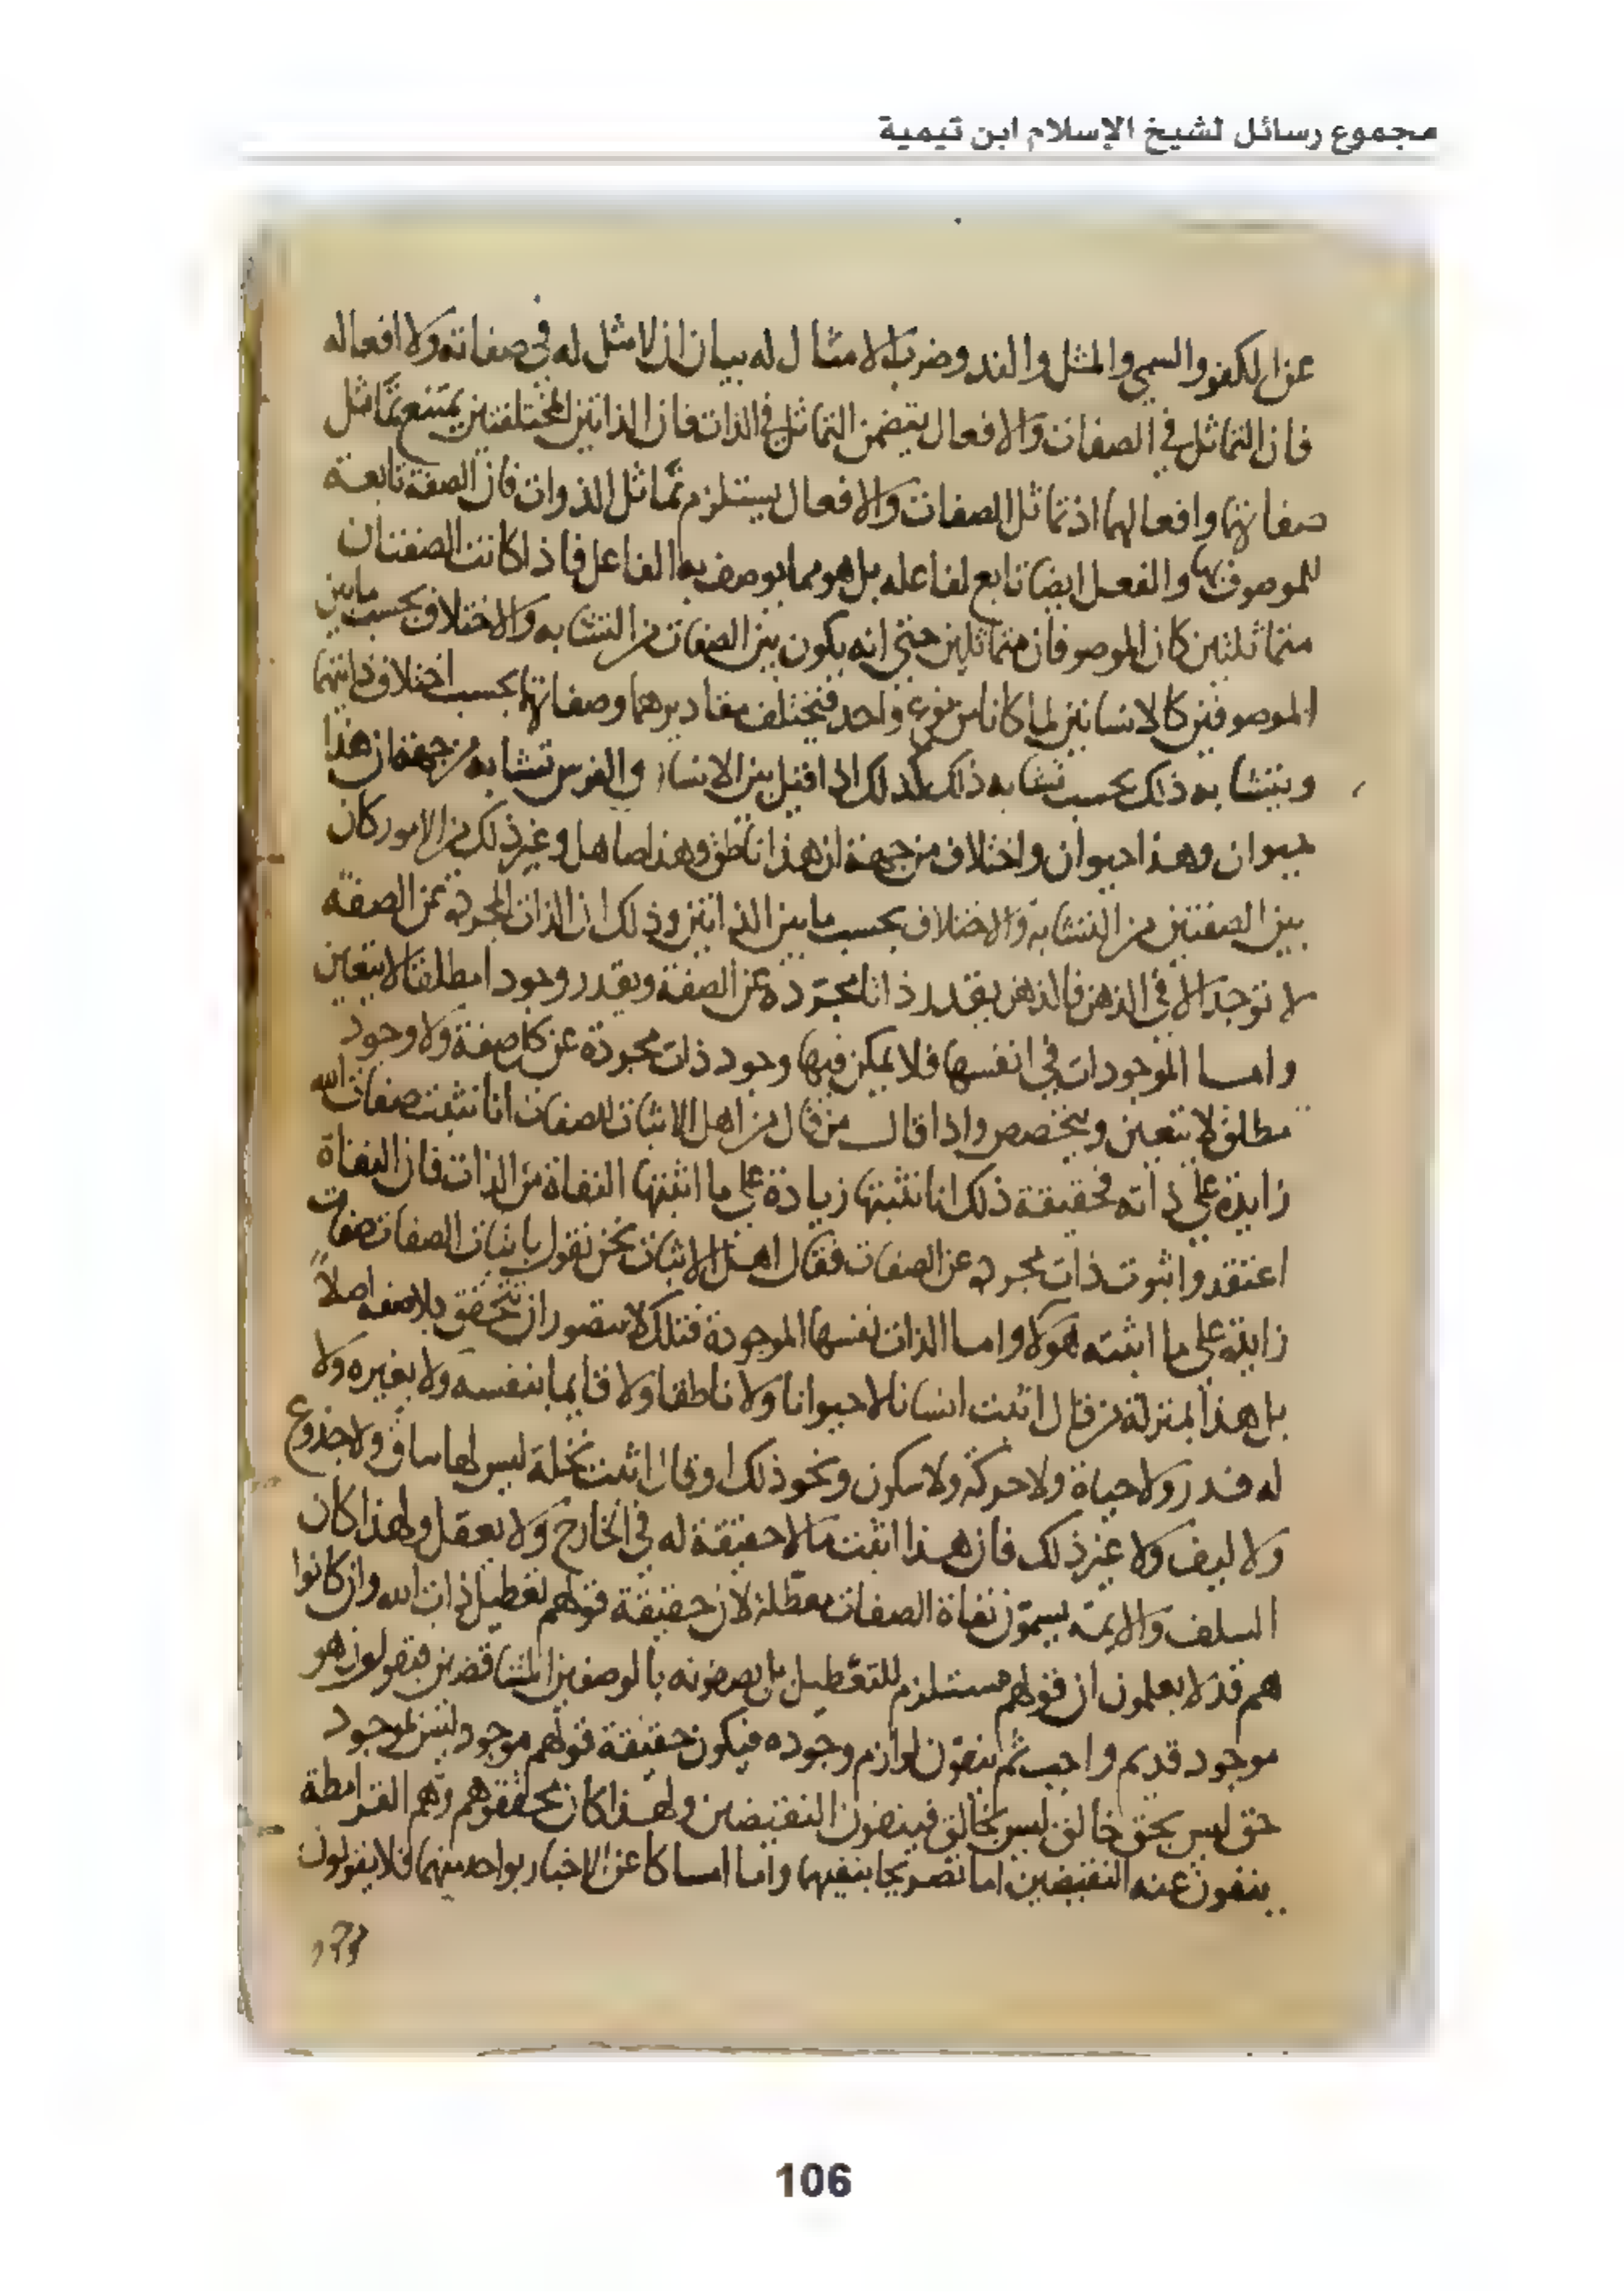 مجموع رسائل لشيخ الإسلام ابن تيمية
عن الكفو والسمي والمثل والند وضرب الامثال له بيان ان لا مثل له في صفاته ولا افعاله
فان التماثل في الصفات والافعال يتضمن التماثل في الذات فان الذاتين المختلفتين يمتنع تماثل
صفاتهما وافعالهما اذ تماثل الصفات والافعال يستلزم تماثل الذوات فان الصفة تابعة
للموصوف بها والفعل ايضا تابع لفاعله بل هو مما يوصف به الفاعل فاذا كانت الصفتان
متماثلتين كان الموصوفان متماثلين حتى انه يكون بين الصفات من التشابه والاختلاف بحسب ما بين
الموصوفين كالانسانين لما كانا من نوع واحد فتختلف مقاديرهما وصفاتهما بحسب اختلاف ذاتيهما
ويتشابه ذلك بحسب تشابه ذلك كذلك اذا قيل بين الانسان والفرس تشابه من جهة ان هذا
حيوان وهذا حيوان واختلاف من جهة ان هذا ناطق وهذا صاهل وغير ذلك من الامور كان
بين الصفتين من التشابه والاختلاف بحسب ما بين الذاتين وذلك ان الذات المجردة عن الصفة
لا توجد الا في الذهن فالذهن يقدر ذاتا مجردة عن الصفة ويقدر وجودا مطلقا لا يتعين
واما الموجودات في انفسها فلا يمكن فيها وجود ذات مجردة عن كل صفة ولا وجود
مطلق لا يتعين ويتخصص واذا قال من قال من اهل الاثبات للصفات انا نثبت صفات الله
زايدة على ذاته فحقيقة ذلك انا نثبتها زيادة على ما اثبتها النفاة من الذات فان النفاة
اعتقدوا ثبوت ذات مجردة عن الصفات فقال اهل الاثبات نحن نقول باثبات الصفات صفات
زايدة على ما اثبته هولا واما الذات نفسها الموجودة فتلك لا يتصور ان تتحقق بلا صفة اصلاً
بل هذا بمنزلة من قال اثبت انسانا لا حيوانا ولا ناطقا ولا قايما بنفسه ولا بغيره ولا
له قدر ولا حياة ولا حركة ولا سكون ونحو ذلك او قال اثبت نخلة ليس لها ساق ولا جذوع
ولا ليف ولا غير ذلك فان هذا اثبت مالا حقيقة له في الخارج ولا يعقل ولهذا كان
السلف والايمة يسمون نفاة الصفات معطلة لان حقيقة قولهم تعطيل ذات الله وان كانوا
هم قد لا يعلمون ان قولهم مستلزم للتعطيل بل يصفونه بالوصفين المتناقضين فيقولون هو
موجود قديم واجب ثم ينفون لوازم وجوده فيكون حقيقة قولهم موجود ليس بموجود
حق ليس بحق خالق ليس بخالق فينفون النقيضين ولهذا كان محققوهم وهم القرامطة
ينفون عنه النقيضين اما تصريحا بنفيهما واما امساكا عن الاخبار بواحد منهما فلا يقولون
106